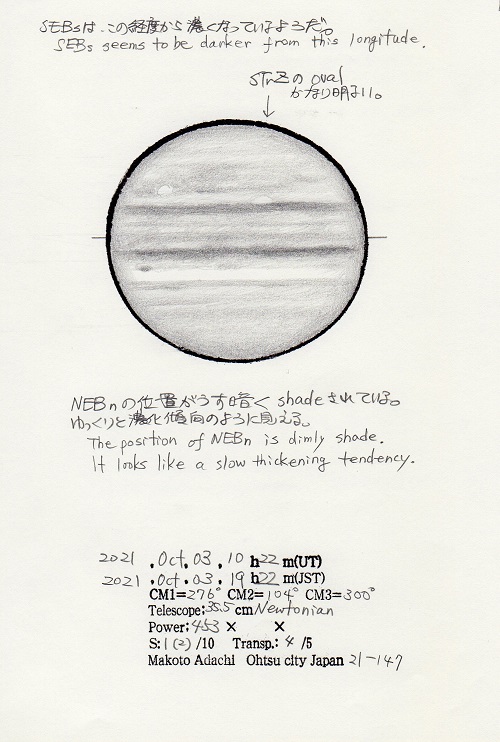 SEBsは、この経度から濃くなっているようだ。
SEBs seems to be darker from this longitude.
STrZの oval
かなり明るい。
NEBnの位置がうす暗く shadeされている。
ゆっくりと濃化傾向のように見える。
The position of NEBn is dimly shade.
It looks like a slow thickening tendency.
2021 . Oct. 03 , 10 h22 m(UT)
2021 . Oct. 03 . 19 h22 m(JST)
CM1=276° CM2=104° CM3=300°
Telescope; 35.5 cm Newtonian
Power; 453 × ×
S: 1 (2) /10 Transp.: 4 /5
Makoto Adachi Ohtsu city Japan 21-147